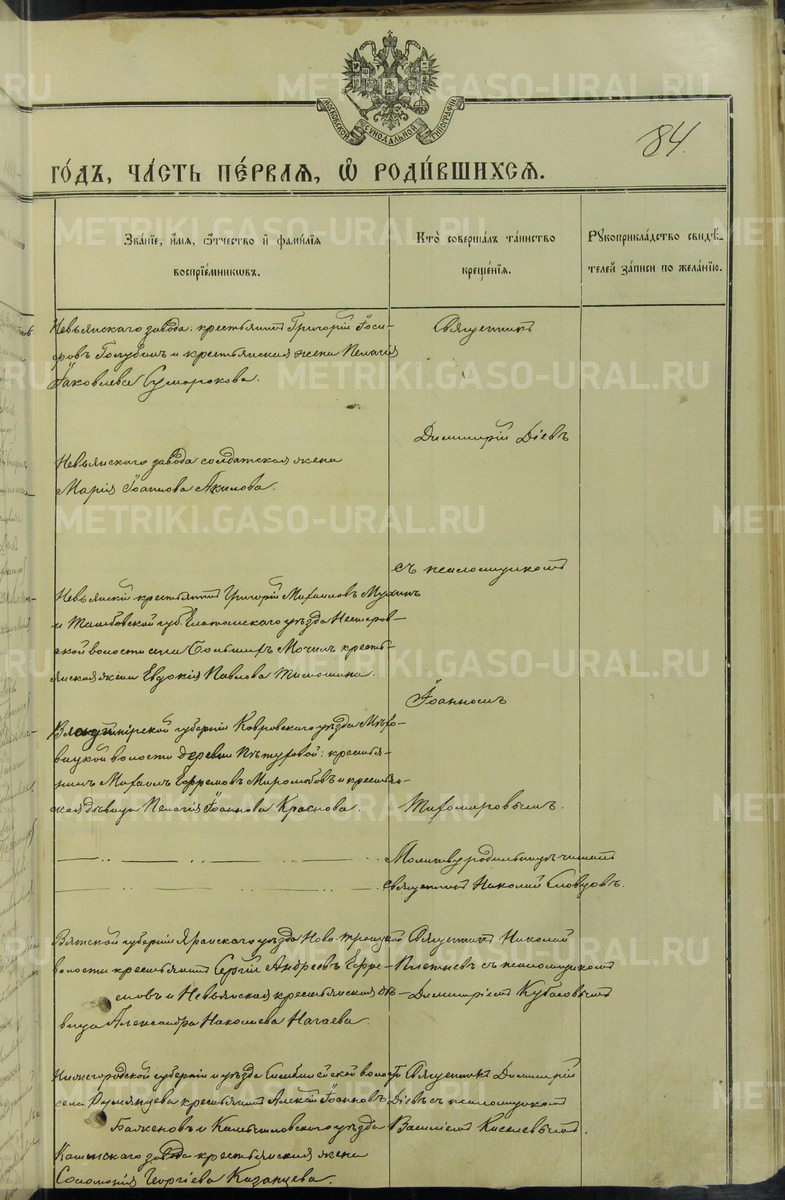 МОСКОВСКОЙ СѴНОДАЛЬНОЙ ТИПОГРАФІИ
84.
ГО́ДЪ, ЧА́СТЬ ПЕ́РВАѦ, Ѡ҆ РОДИ́ВШИХСѦ.
Зва́нїе, и҆́мѧ, ѻ҆́тчество и҆ фами́лїѧ
воспрїе́мникѡвъ.
Кто̀ соверша́лъ та́инство
креще́нїѧ.
Рꙋкоприкла́дство свидѣ́-
телей за́писи по жела́нїю.
Невьянскаго завода: крестьянинъ Григорій Іоси-
фовъ Голубинъ и крестьянская жена Пелагія
Іаковлева Суморокова.
Священникъ
Димитрій Діевъ
Невьянскаго завода солдатская жена
Марія Іоаннова Акилова.
съ псаломщикомъ
Невьянскій крестьянинъ Григорій Михаиловъ Мухинъ
и Тамбовской губ. Елатомскаго уѣзда Нестеров-
ской волости села Большихъ Мочилъ кресть-
янская жена Евдокія Павлова Тимошина.
Іоанномъ
Владимірской губерніи Ковровскаго уѣзда
волости деревни Пѣтуховой: крестья-
нинъ Михаилъ Ефремовъ Миролюбовъ и крестьян-
ская дѣвица Пелагія Іоаннова Краснова.
Тихомировымъ.
Молитву родильницѣ читалъ
священникъ Николай Словцовъ.
Вятской губерніи Яранскаго уѣзда Ново-троицкой
волости крестьянинъ Сергій Андреевъ Ефре-
мовъ и Невьянская крестьянская дѣ-
вица Александра Николаева Нагаева.
Священникъ Николай
Плотневъ съ псаломщикомъ
Димитріемъ Кубасовымъ
Нижегородской губерніи и уѣзда волости
села Румянцева крестьянинъ Алексѣй Іоанновъ
Баженовъ и Камышловскаго уѣзда
Каменскаго завода крестьянская жена
Соломонія Георгіева Казанцева.
Священникъ Димитрій
Діевъ съ псаломщикомъ
Василіемъ Киселевымъ.
METRIKI.GASO-URAL.RU